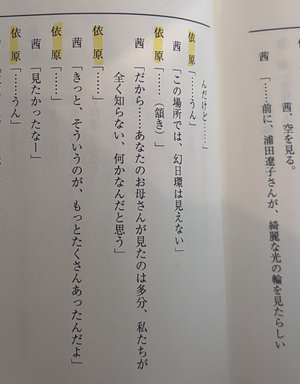 茜、空を見る。
茜「……前に、浦田遼子さんが、綺麗な光の輪を見たらしい
んだけど……」
依原「……うん」
茜「この場所では、幻日環は見えない」
依原「……(頷き)」
茜「だから……あなたのお母さんが見たのは多分、私たちが
全く知らない、何かなんだと思う」
依原「……」
茜「きっと、そういうのが、もっとたくさんあったんだよ」
依原「……」
茜「見たかったなー」
依原「……うん」